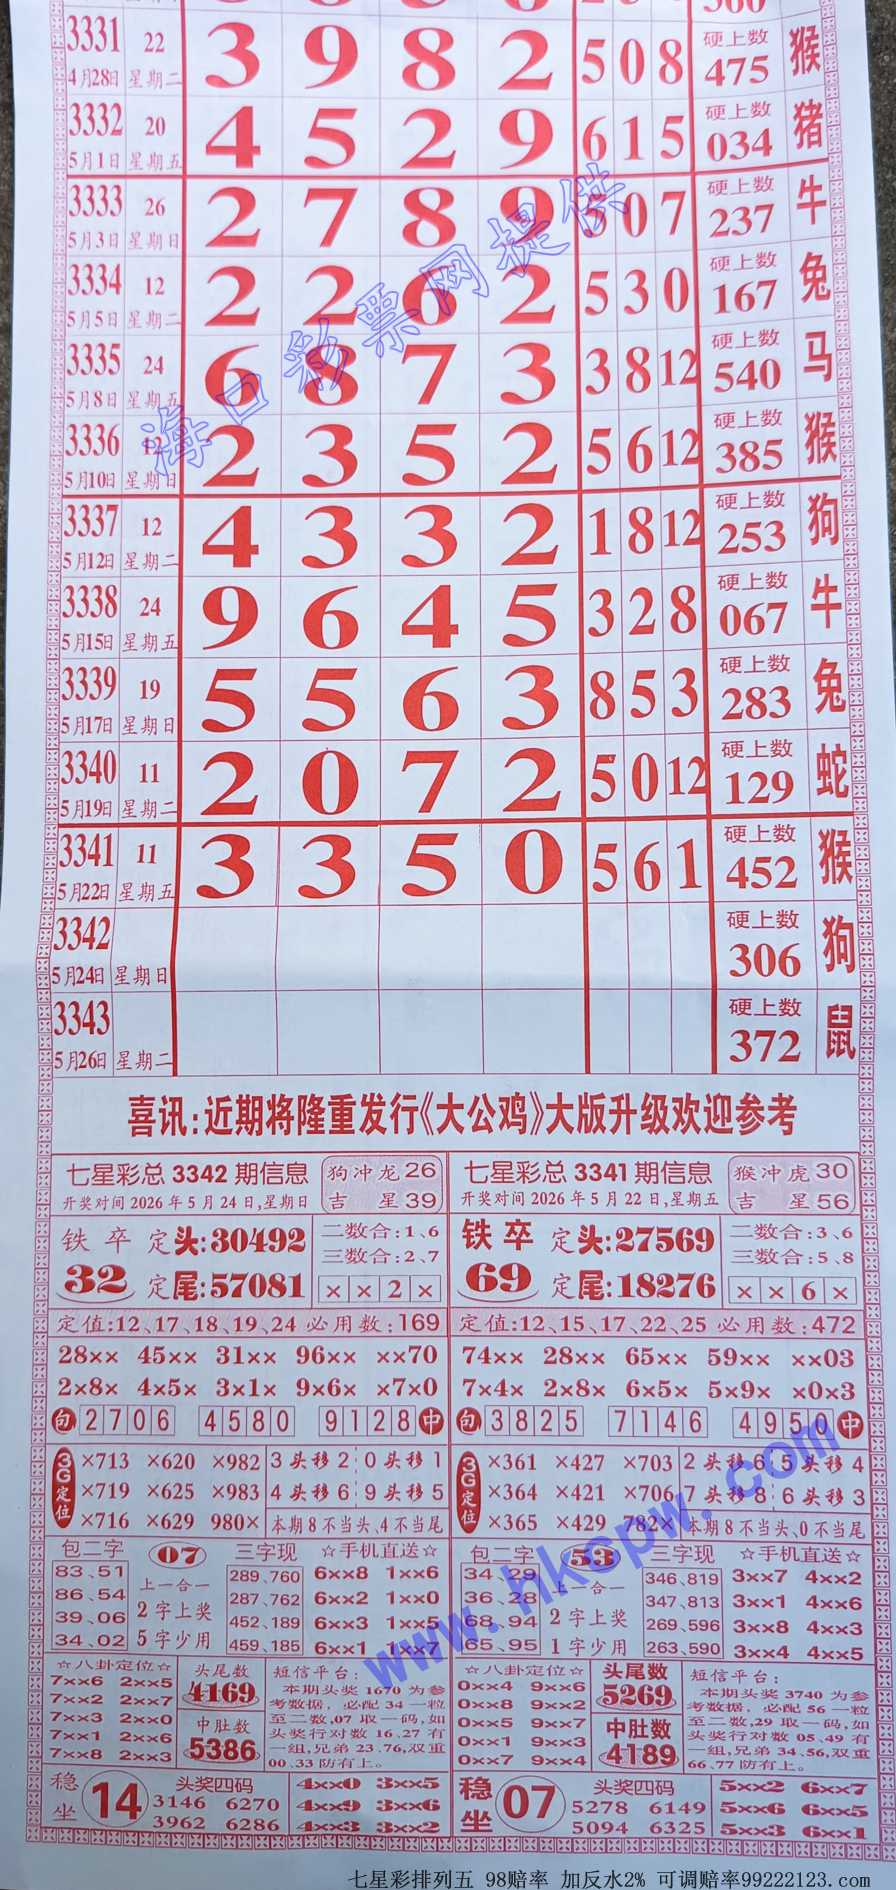 560
3331 22 3 9 8 2 5 0 8 硬上数 猴
4月28日 星期二 475
3332 20 4 5 2 9 6 1 5 硬上数 猪
5月1日 星期五 034
3333 26 2 7 8 9 5 0 7 硬上数 牛
5月3日 星期日 237
3334 12 2 2 6 2 5 3 0 硬上数 兔
5月5日 星期二 167
3335 24 6 8 7 3 3 8 12 硬上数 马
5月8日 星期五 540
3336 12 2 3 5 2 5 6 12 硬上数 猴
5月10日 星期日 385
3337 12 4 3 3 2 1 8 12 硬上数 狗
5月12日 星期二 253
3338 24 9 6 4 5 3 2 8 硬上数 牛
5月15日 星期五 067
3339 19 5 5 6 3 8 5 3 硬上数 兔
5月17日 星期日 283
3340 11 2 0 7 2 5 0 12 硬上数 蛇
5月19日 星期二 129
3341 11 3 3 5 0 5 6 1 硬上数 猴
5月22日 星期五 452
3342 硬上数 狗
5月24日 星期日 306
3343 硬上数 鼠
5月26日 星期二 372
海口彩票网提供
喜讯:近期将隆重发行《大公鸡》大版升级欢迎参考
七星彩总 3342 期信息 狗冲龙26
开奖时间2026年5月24日,星期日 吉 星39
铁卒 定头:30492 二数合:1、6
三数合:2、7
32 定尾:57081 × × 2 ×
定值:12、17、18、19、24 必用数:169
28×× 45×× 31×× 96×× ××70
2×8× 4×5× 3×1× 9×6× ×7×0
包 2706 4580 9128 中
3G定位 ×713 ×620 ×982 3头移2 0头移1
×719 ×625 ×983 4头移6 9头移5
×716 ×629 980× 本期8不当头、4不当尾
包二字 07 三字现 ☆手机直送☆
83、51 上一合一 289、760 6××8 1××6
86、54 2字上奖 287、762 6××2 1××0
39、06 5字少用 452、189 6××3 1××5
34、02 459、185 6××1 1××7
☆八卦定位☆ 头尾数 短信平台:
7××6 2××5 4169 本期头奖1670为参
7××2 2××7 考数据,必配34一粒
7××3 2××0 中肚数 至二数,07取一码,如
7××1 2××6 5386 头奖行对数16、27有
7××8 2××3 一组,兄弟23、76,双重
00、33防有上。
稳坐 14 头奖四码 4××0 3××5
3146 6270 4××9 3××6
3962 6286 4××3 3××2
七星彩总 3341 期信息 猴冲虎30
开奖时间2026年5月22日,星期五 吉 星56
铁卒 定头:27569 二数合:3、6
三数合:5、8
69 定尾:18276 × × 6 ×
定值:12、15、17、22、25 必用数:472
74×× 28×× 65×× 59×× ××03
7×4× 2×8× 6×5× 5×9× ×0×3
包 3825 7146 4950 中
3G定位 ×361 ×427 ×703 2头移6 5头移4
×364 ×421 ×706 7头移8 6头移3
×365 ×429 782× 本期8不当头、0不当尾
包二字 53 三字现 ☆手机直送☆
34、29 上一合一 346、819 3××7 4××2
36、28 2字上奖 347、813 3××1 4××6
68、94 1字少用 269、596 3××8 4××3
65、95 263、590 3××4 4××5
☆八卦定位☆ 头尾数 短信平台:
0××4 9××6 5269 本期头奖3740为参
0××8 9××2 考数据,必配56一粒
0××5 9××7 中肚数 至二数,29取一码,如
0××1 9××3 4189 头奖行对数05、49有
0××7 9××4 一组,兄弟34、56,双重
66、77防有上。
稳坐 07 头奖四码 5××2 6××7
5278 6149 5××6 6××5
5094 6325 5××3 6××1
www.hkcpw.com
七星彩排列五 98赔率 加反水2% 可调赔率99222123.com